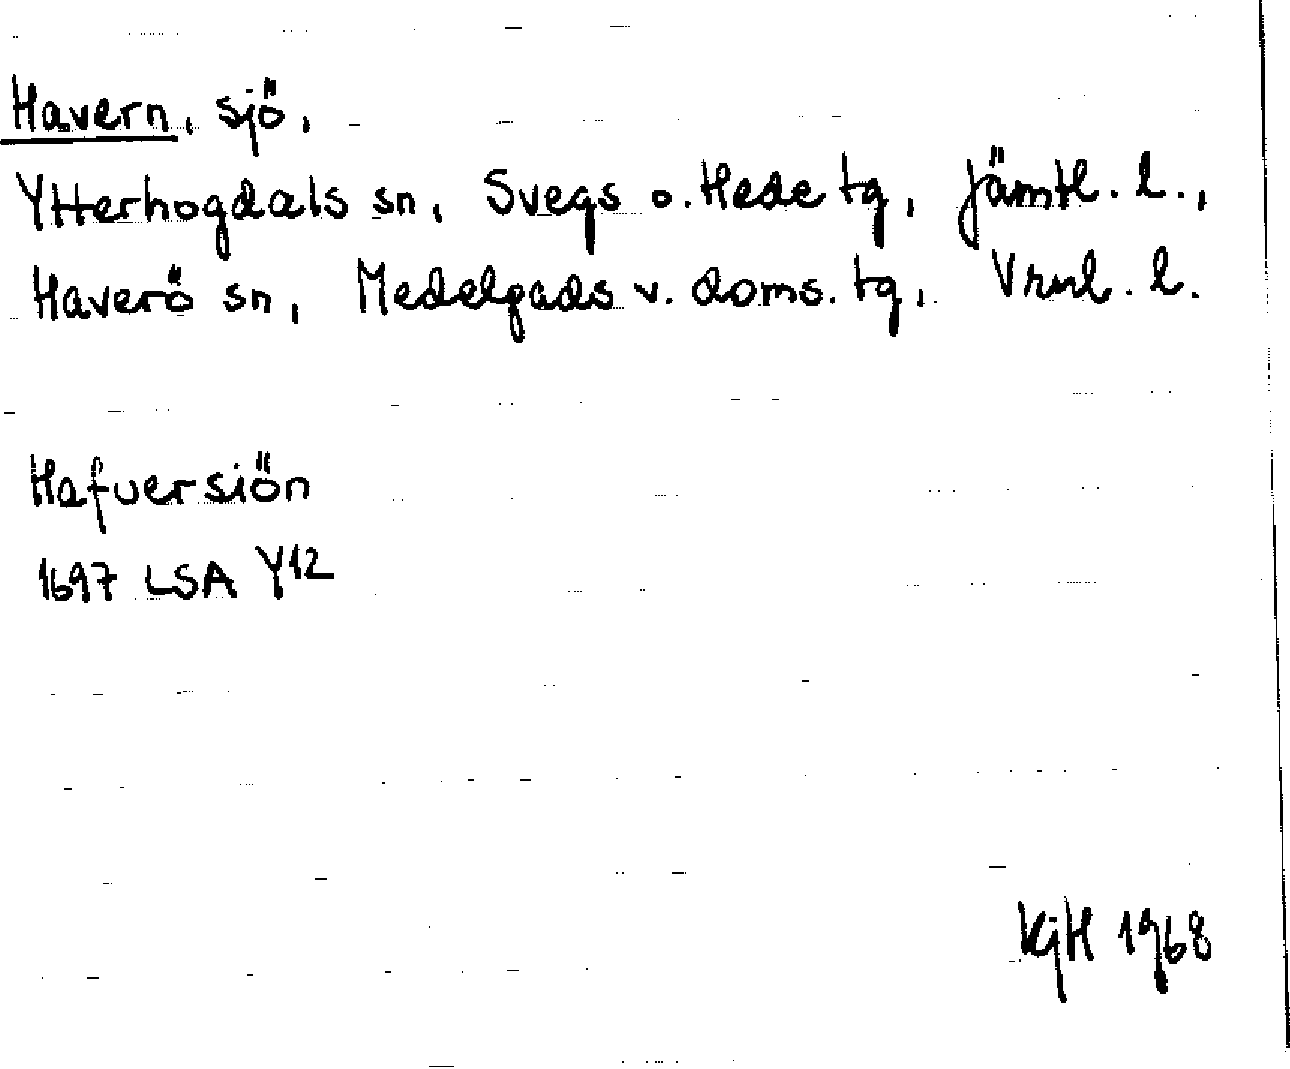 Havern, sjö,
Ytterhogdals sn, Svegs o. Hede tg, Jämtl. l.,
Haverö sn, Medelpads v. doms. tg, Vrnl. l.
Hafversiön
1697 LSA Y12
KjH 1968